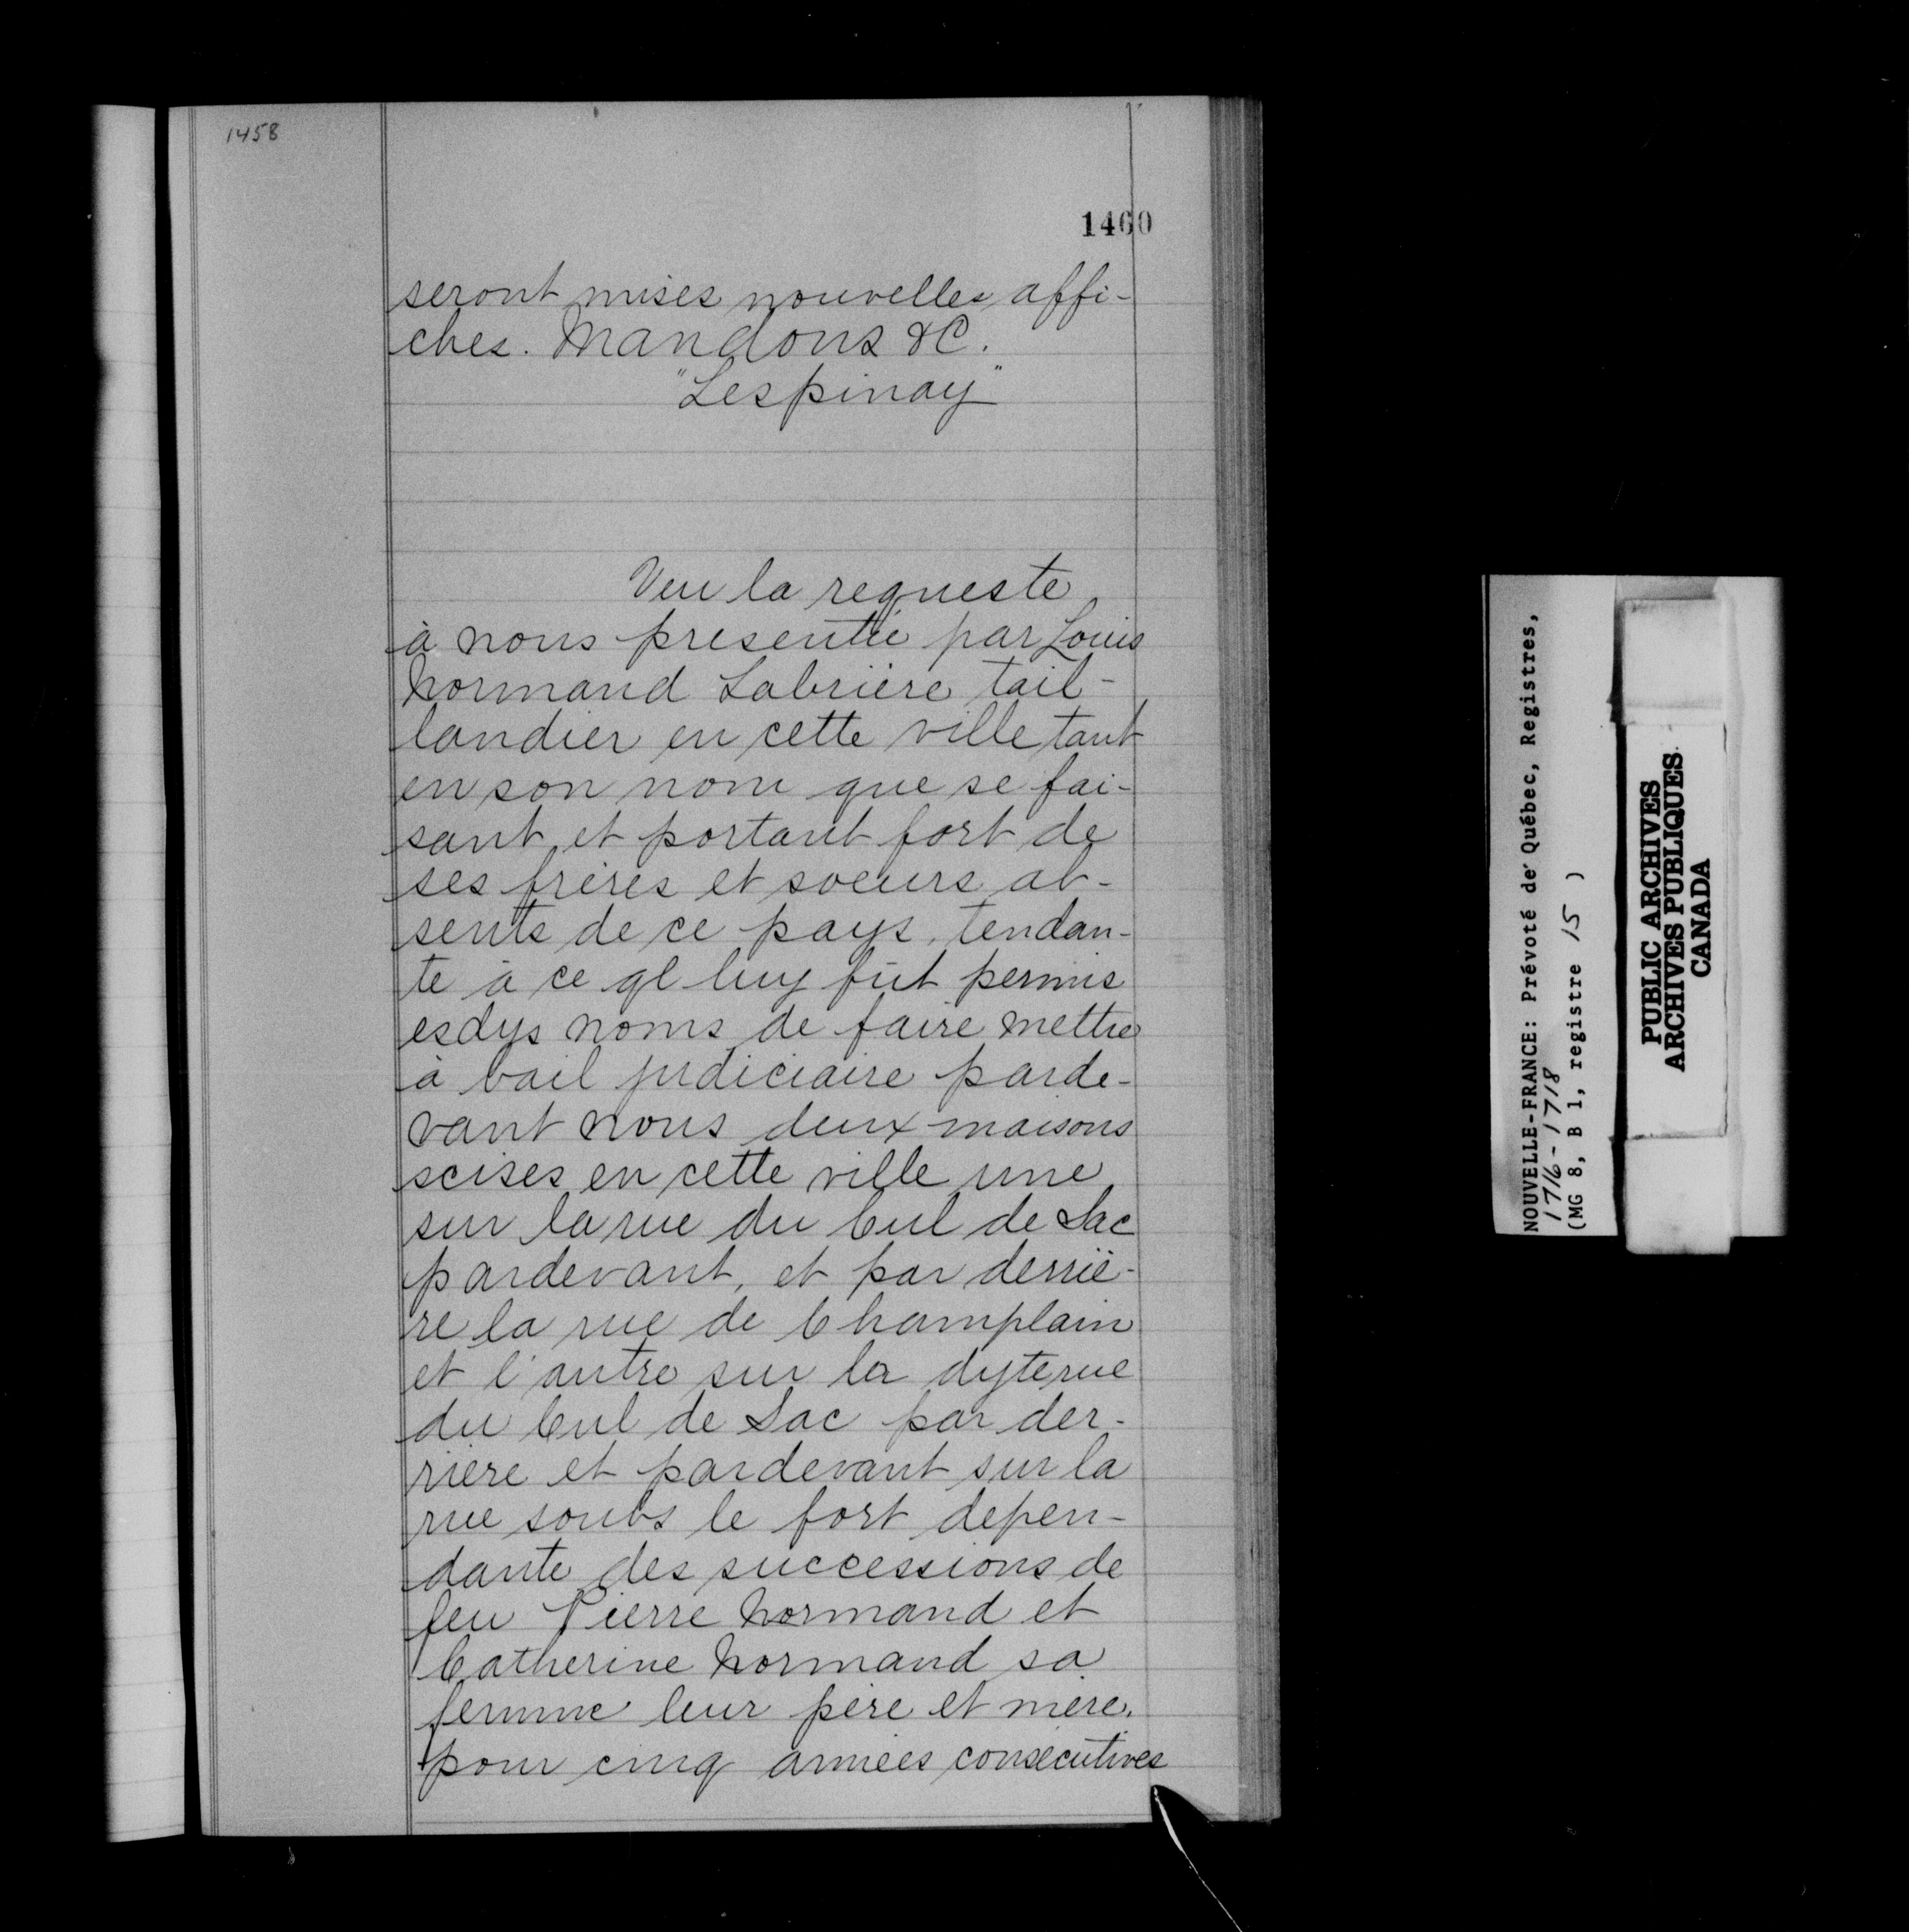 1458
1460
seront mises nouvelles affi-
ches. Mandons &C.
"Lespinay"
Veu la requeste
à nous presentée par Louis
Normand Labrière tail-
landier en cette ville tant
en son nom que se fai-
sant et portant fort de
ses frères et soeurs ab-
sents de ce pays, tendan-
te à ce ql luy fût permis
esdys noms de faire mettre
à bail judiciaire parde-
vant nous deux maisons
scises en cette ville une
sur la rue du Cul de Sac
pardevant, et par derriè-
re la rue de Champlain
et l'autre sur la dyte rue
du Cul de Sac par der-
rière et pardevant sur la
rue soubs le fort depen-
dante des successions de
feu Pierre Normand et
Catherine Normand sa
femme leur père et mère,
pour cinq années consécutives
NOUVELLE-FRANCE: Prévoté de Québec, Registres,
1716-1718
(MG 8, B 1, registre 15 )
PUBLIC ARCHIVES
ARCHIVES PUBLIQUES
CANADA